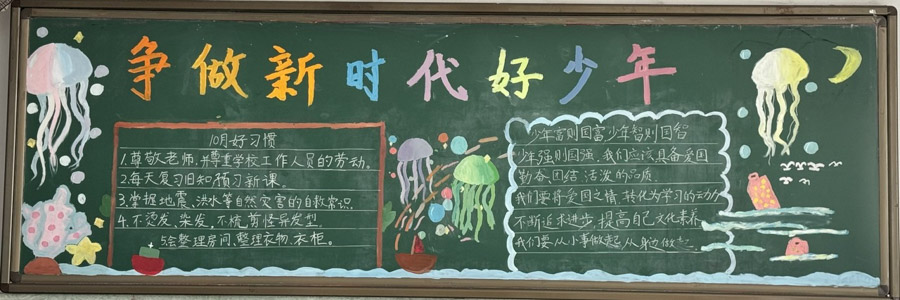 争做新时代好少年
10月好习惯
1.尊敬老师,并尊重学校工作人员的劳动。
2.每天复习旧知预习新课。
3.掌握地震、洪水等自然灾害的自救常识
4.不烫发、染发,不梳剪怪异发型
5.会整理房间、整理衣物、衣柜。
少年富则国富少年智则国智
少年强则国强,我们应该具备爱国
勤奋 团结 活泼的品质
我们要将爱国之情,转化为学习的动力
不断追求进步 提高自己 文化素养
我们要从小事做起 从身边做起